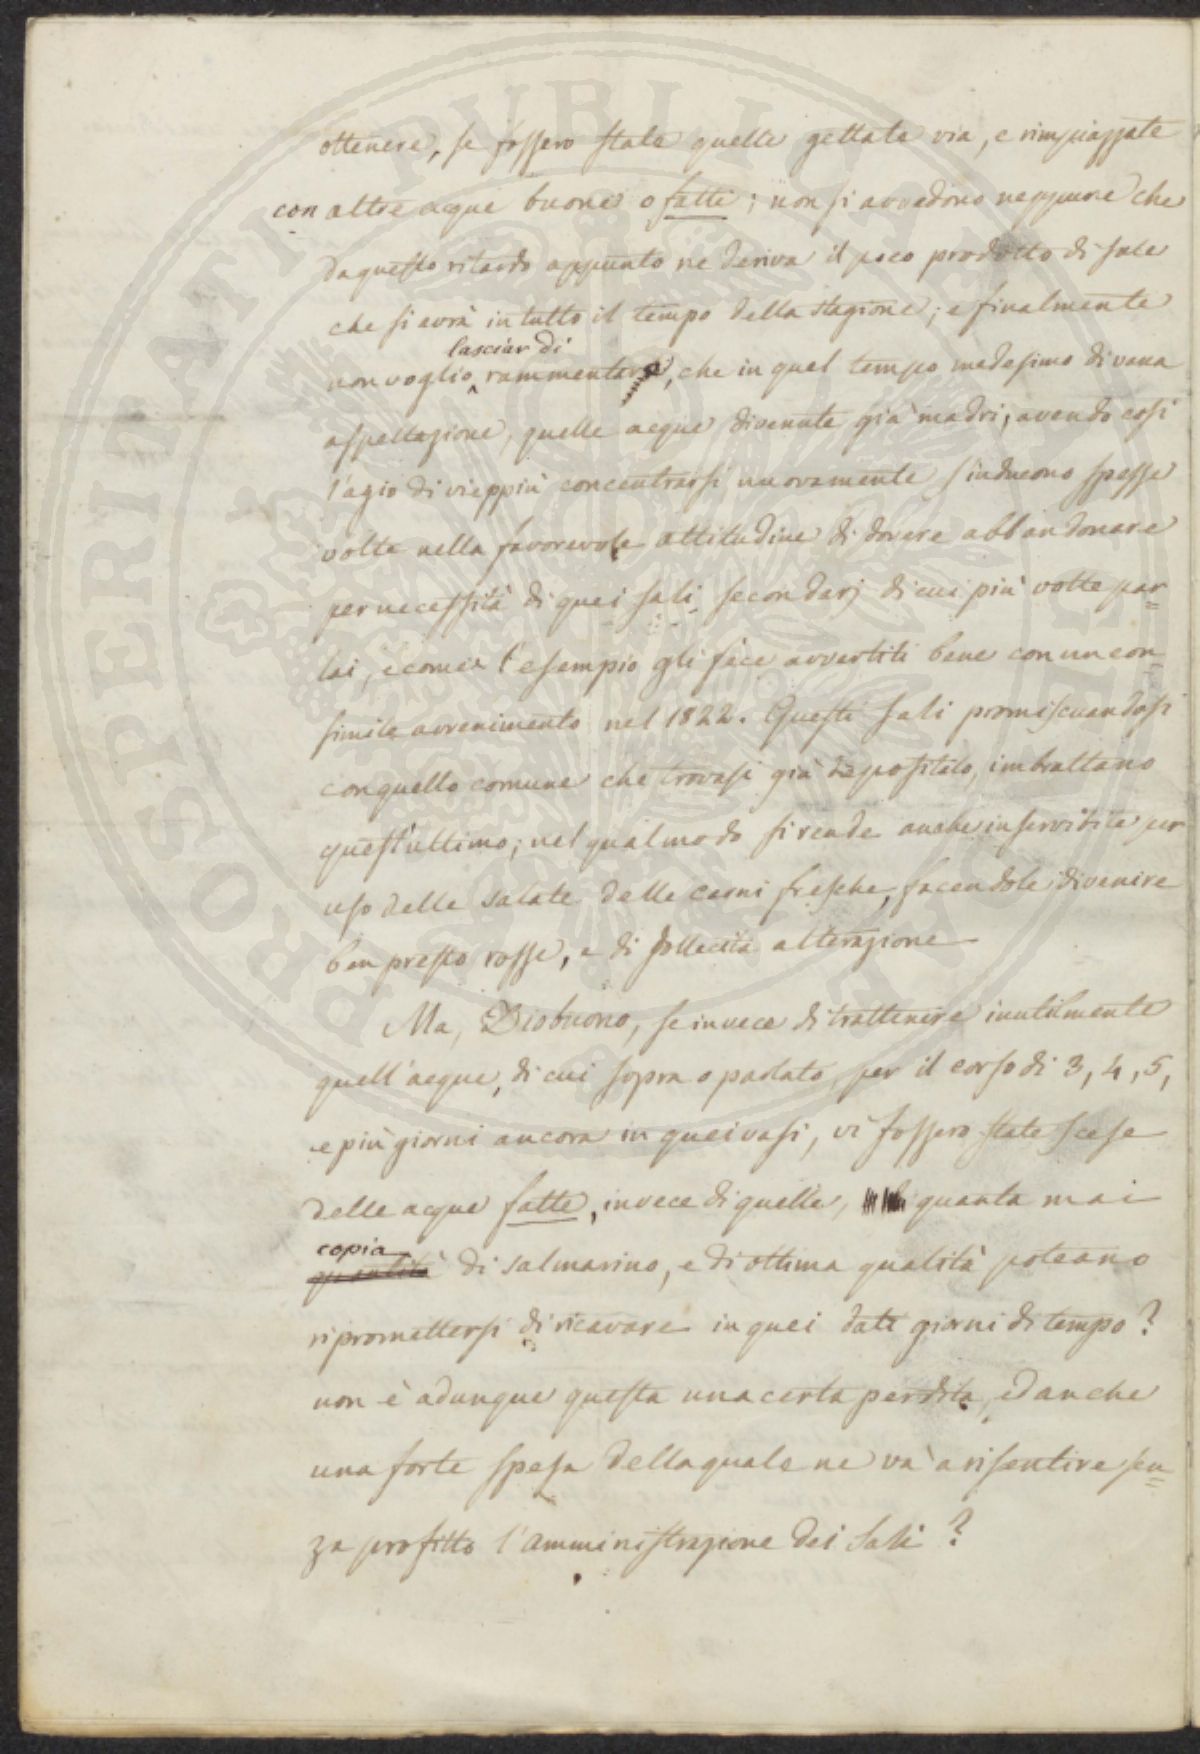 ottenere, se fossero state quelle gettate via, e rimpiazzate
con altre acque buone o fatte; non si avvedono neppure che
da questo ritardo appunto ne deriva il poco prodotto di sale
che si avrà in tutto il tempo della stagione; e finalmente
lasciar di
non voglio rammentare, che in quel tempo medesimo di vana
aspettazione, quelle acque divenute già madri, avendo così
l'agio di vieppiù concentrarsi nuovamente s'inducono spesse
volte nella favorevole attitudine di dovere abbandonare
per necessità di quei sali secondarj di cui più volte par=
lai, e come l'esempio gli fece avvertiti bene con un con=
simile avvenimento nel 1822. Questi sali promiscuandosi
con quello comune che trovasi già depositato, imbrattano
quest'ultimo; nel qual modo si rende anche inservibile per
uso delle salate delle carni fresche, facendole divenire
ben presto rosse, e di sollecita alterazione
Ma, Dio buono, se invece di trattenere inutilmente
quell'acque, di cui sopra o parlato, per il corso di 3, 4, 5,
e più giorni ancora in quei vasi, vi fossero state scese
delle acque fatte, invece di quelle, quanta mai
copia
quantità di salmarino, e di ottima qualità poteano
ripromettersi di ricavare in quei dati giorni di tempo?
non è adunque questa una certa perdita, ed anche
una forte spesa della quale ne và a risentire sen=
za profitto l'amministrazione dei Sali?
PROSPERITATI PUBLICAE